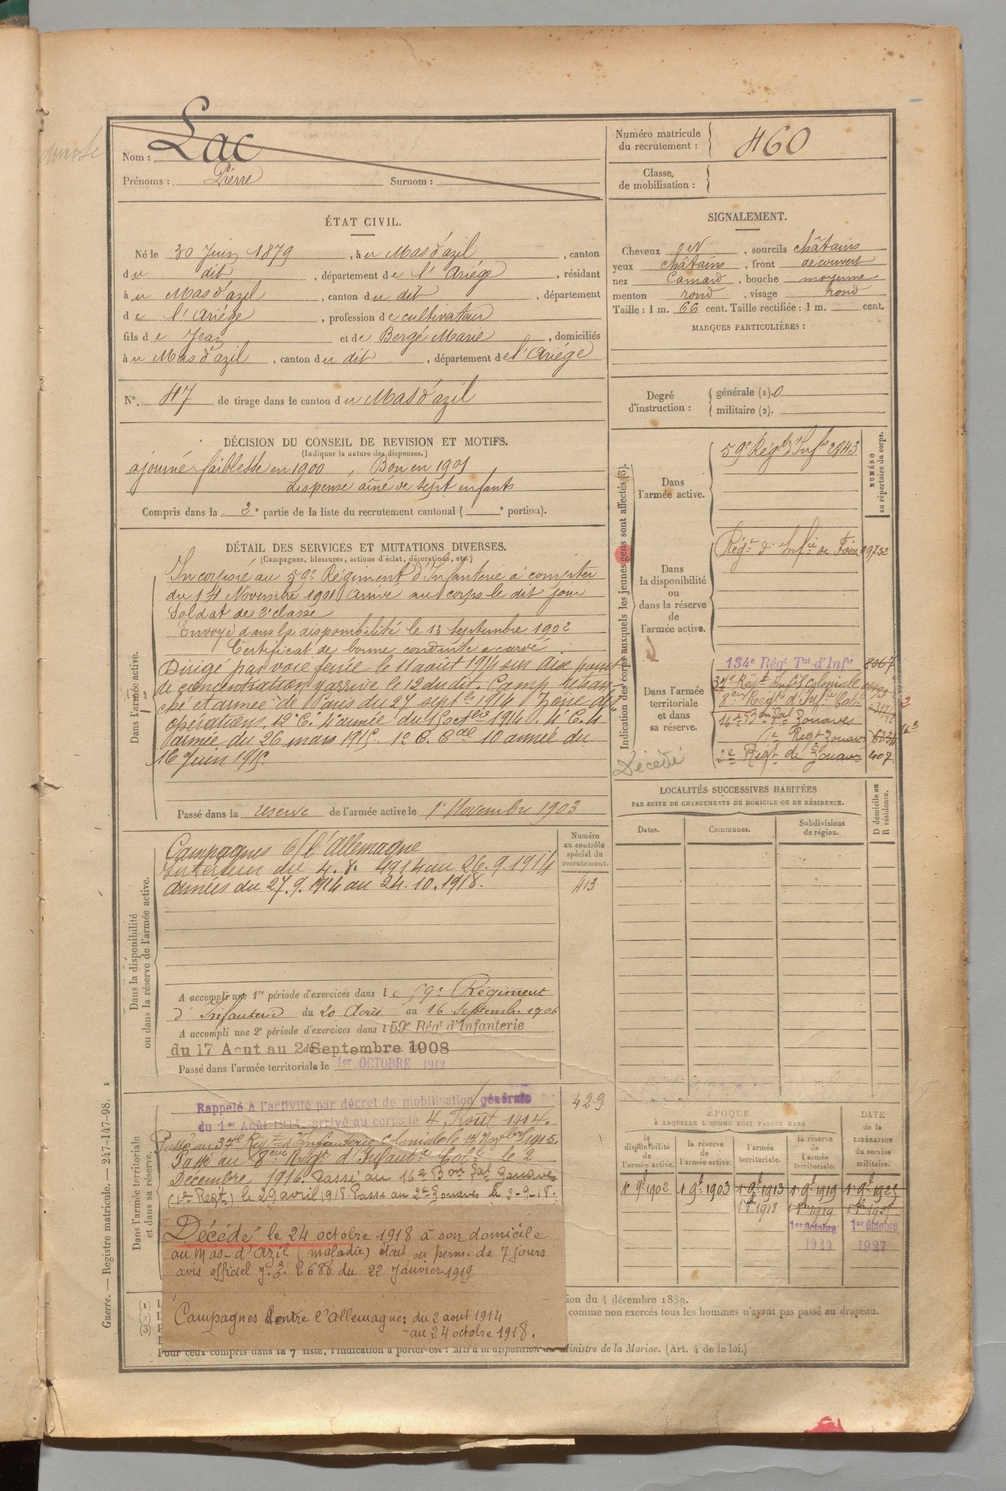 Nom : Lac
Prénoms : Pierre Surnom :
Numéro matricule du recrutement : 460
Classe de mobilisation :
ÉTAT CIVIL.
Né le 30 Juin 1879, à u Mas d'azil, canton
d u dit, département d e l'Ariége, résidant
à u Mas d'azil, canton d u dit, département
d e l'Ariége, profession d e cultivateur
fils d e Jean et de Bergé Marie, domiciliés
à u Mas d'azil, canton d u dit, département d e l'Ariége
N° 47 de tirage dans le canton d u Mas d'azil
SIGNALEMENT.
Cheveux , sourcils châtains
yeux châtains, front découvert
nez Camard, bouche moyenne
menton rond, visage rond
Taille : 1 m. 66 cent. Taille rectifiée : 1 m. cent.
MARQUES PARTICULIÈRES :
Degré d'instruction : générale (1). 0
militaire (2).
DÉCISION DU CONSEIL DE REVISION ET MOTIFS.
(Indiquer la nature des dispenses.)
ajourné faiblesse en 1900, Bon en 1901
dispense aîné de sept enfants
Compris dans la 2e partie de la liste du recrutement cantonal ( e portion).
DÉTAIL DES SERVICES ET MUTATIONS DIVERSES.
(Campagnes, blessures, actions d'éclat, décorations, etc.)
Dans l'armée active.
Incorporé au 59e Régiment d'Infanterie à compter
du 14 Novembre 1901 Arrivé au corps le dit jour
Soldat de 2e classe
Envoyé dans la disponibilité le 13 Septembre 1902
Certificat de bonne conduite accordé
Dirigé par voie ferrée le 11 août 1914 sur
de concentration y arrive le 12 dudit. Camp retran
ché et armée de Paris du 27 septbre 1914 Zone des
opérations 12e C. 4e armée du 1 Octbre 1914. 4e C. 4
armée du 26 mars 1915. 10 armée du
16 Juin 1915.
Passé dans la réserve de l'armée active le 1er Novembre 1903
Dans la disponibilité ou dans la réserve de l'armée active.
Campagnes c/ l'Allemagne
Intérieur du 4. 8. 1914 au 26. 9. 1914
armées du 27. 9. 1914 au 24. 10. 1918.
A accompli une 1re période d'exercices dans l e 59e Régiment
d'Infanterie du 20 Août au 16 Septembre 1906
A accompli une 2e période d'exercices dans l 59e Régt d'Infanterie
du 17 Aout au 2 Septembre 1908
Passé dans l'armée territoriale le 1er OCTOBRE 1913
Numéro au contrôle spécial du recrutement.
413
429
Dans l'armée territoriale et dans sa réserve.
Rappelé à l'activité par décret de mobilisation générale
du 1er Août 1914, arrivé au corps le 4 Août 1914.
Passé au 37e Régt d'Infanterie Coloniale le 1915.
Passé au 8ème Régt d'Infantie Colle le 2
Décembre 1916. Passé au 16e Bon Zouaves
(1er Régt) le 29 avril 1918. Passé au 2e Zouaves le 3-9-18.
Décédé le 24 octobre 1918 à son domicile
au Mas-d'Azil (maladie) était en perm. de 7 jours
avis officiel 2688 du 22 janvier 1919
Campagnes contre l'Allemagne : du 2 aout 1914
au 24 octobre 1918.
Indication des corps auxquels les jeunes gens sont affectés (3).
Dans l'armée active. 59e Régt d'Infie 2843
NUMÉRO au répertoire du corps.
Dans la disponibilité ou dans la réserve de l'armée active. Régt d'Infie de Foix 09732
Dans l'armée territoriale et dans sa réserve.
134e Régt Tal d'Infie
Régt Infie Coloniale
8ème Régt d'Infie Colle
16e Bon Zouaves
1e Régt Zouaves
2e Régt de Zouaves 407
Décédé
LOCALITÉS SUCCESSIVES HABITÉES
PAR SUITE DE CHANGEMENTS DE DOMICILE OU DE RÉSIDENCE.
Dates. Communes. Subdivisions de région. D domicile ou R résidence.
ÉPOQUE
À LAQUELLE L'HOMME DOIT PASSER DANS
la disponibilité de l'armée active. la réserve de l'armée active. l'armée territoriale. la réserve de l'armée territoriale.
DATE DE LA LIBÉRATION du service militaire.
1er 9bre 1902 1er 9bre 1903 1er 9bre 1913 1er 9bre 1919 1er 9bre 1925
1er Octobre 1er Octobre
1920 1927
tion du 4 décembre 1889.
comme non exercés tous les hommes n'ayant pas passé au drapeau.
Pour ceux compris dans la 7e liste, l'indication à porter est : Mis à la disposition du Ministre de la Marine. (Art. 4 de la loi.)
Guerre. — Registre matricule. — 247-147-98.